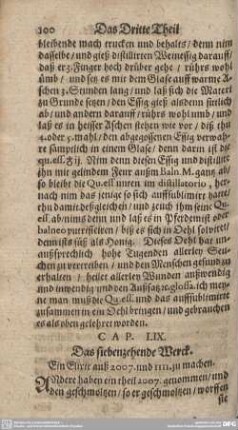 100 Das Dritte Theil
bleibende mach trucken und behalts / denn nim
dasselbe / und gieß distillirten Weinessig darauff /
daß er 3. Finger hoch drüber gehe / rührs wohl
ümb / und setz es mit dem Glase auff warme A-
schen 3. Stunden lang / und laß sich die Materi
zu Grunde setzen / den Essig gieß alsdenn seitlich
ab / und andern darauff / rührs wohl umb / und
laß es in heisser Aschen stehen wie vor / diß thu
4. oder 5. mahl / den abgezogenen Essig verwah-
re sämptlich in einem Glase / denn darin ist die
qu. ell. Nim denn diesen Essig und distillir
ihn mit gelindem Feur außm Baln. M. gantz ab /
so bleibt die Qu. ell unten im distillatorio, her-
nach nim das jenige so sich aufsublimirt hatte /
thu damit deßgleichen / und zeuch ihm seine Qu.
ell. ab / nims denn und laß es in Pferdemist oder
balneo putreficiren / biß es sich in Oehl solvirt /
denn ists süß als Honig. Dieses Oehl hat un-
außsprechlich hohe Tugenden allerley Seu-
chen zu vertreiben / und den Menschen gesund zu
erhalten / heilet allerley Wunden außwendig
und inwendig und den Außsatz. glossa. ich mey-
ne man muß die Qu. ell. und das auffsublimirte
zusammen in ein Oehl bringen / und gebrauchen
es als oben gelehret worden.
CAP. LIX.
Das siebenzehende Werck.
Ein Elixir auß 2007. und 1111. zu machen.
ANdere haben ein theil 2007. genommen / und
den geschmoltzen / so er geschmoltzen / worffen
sie